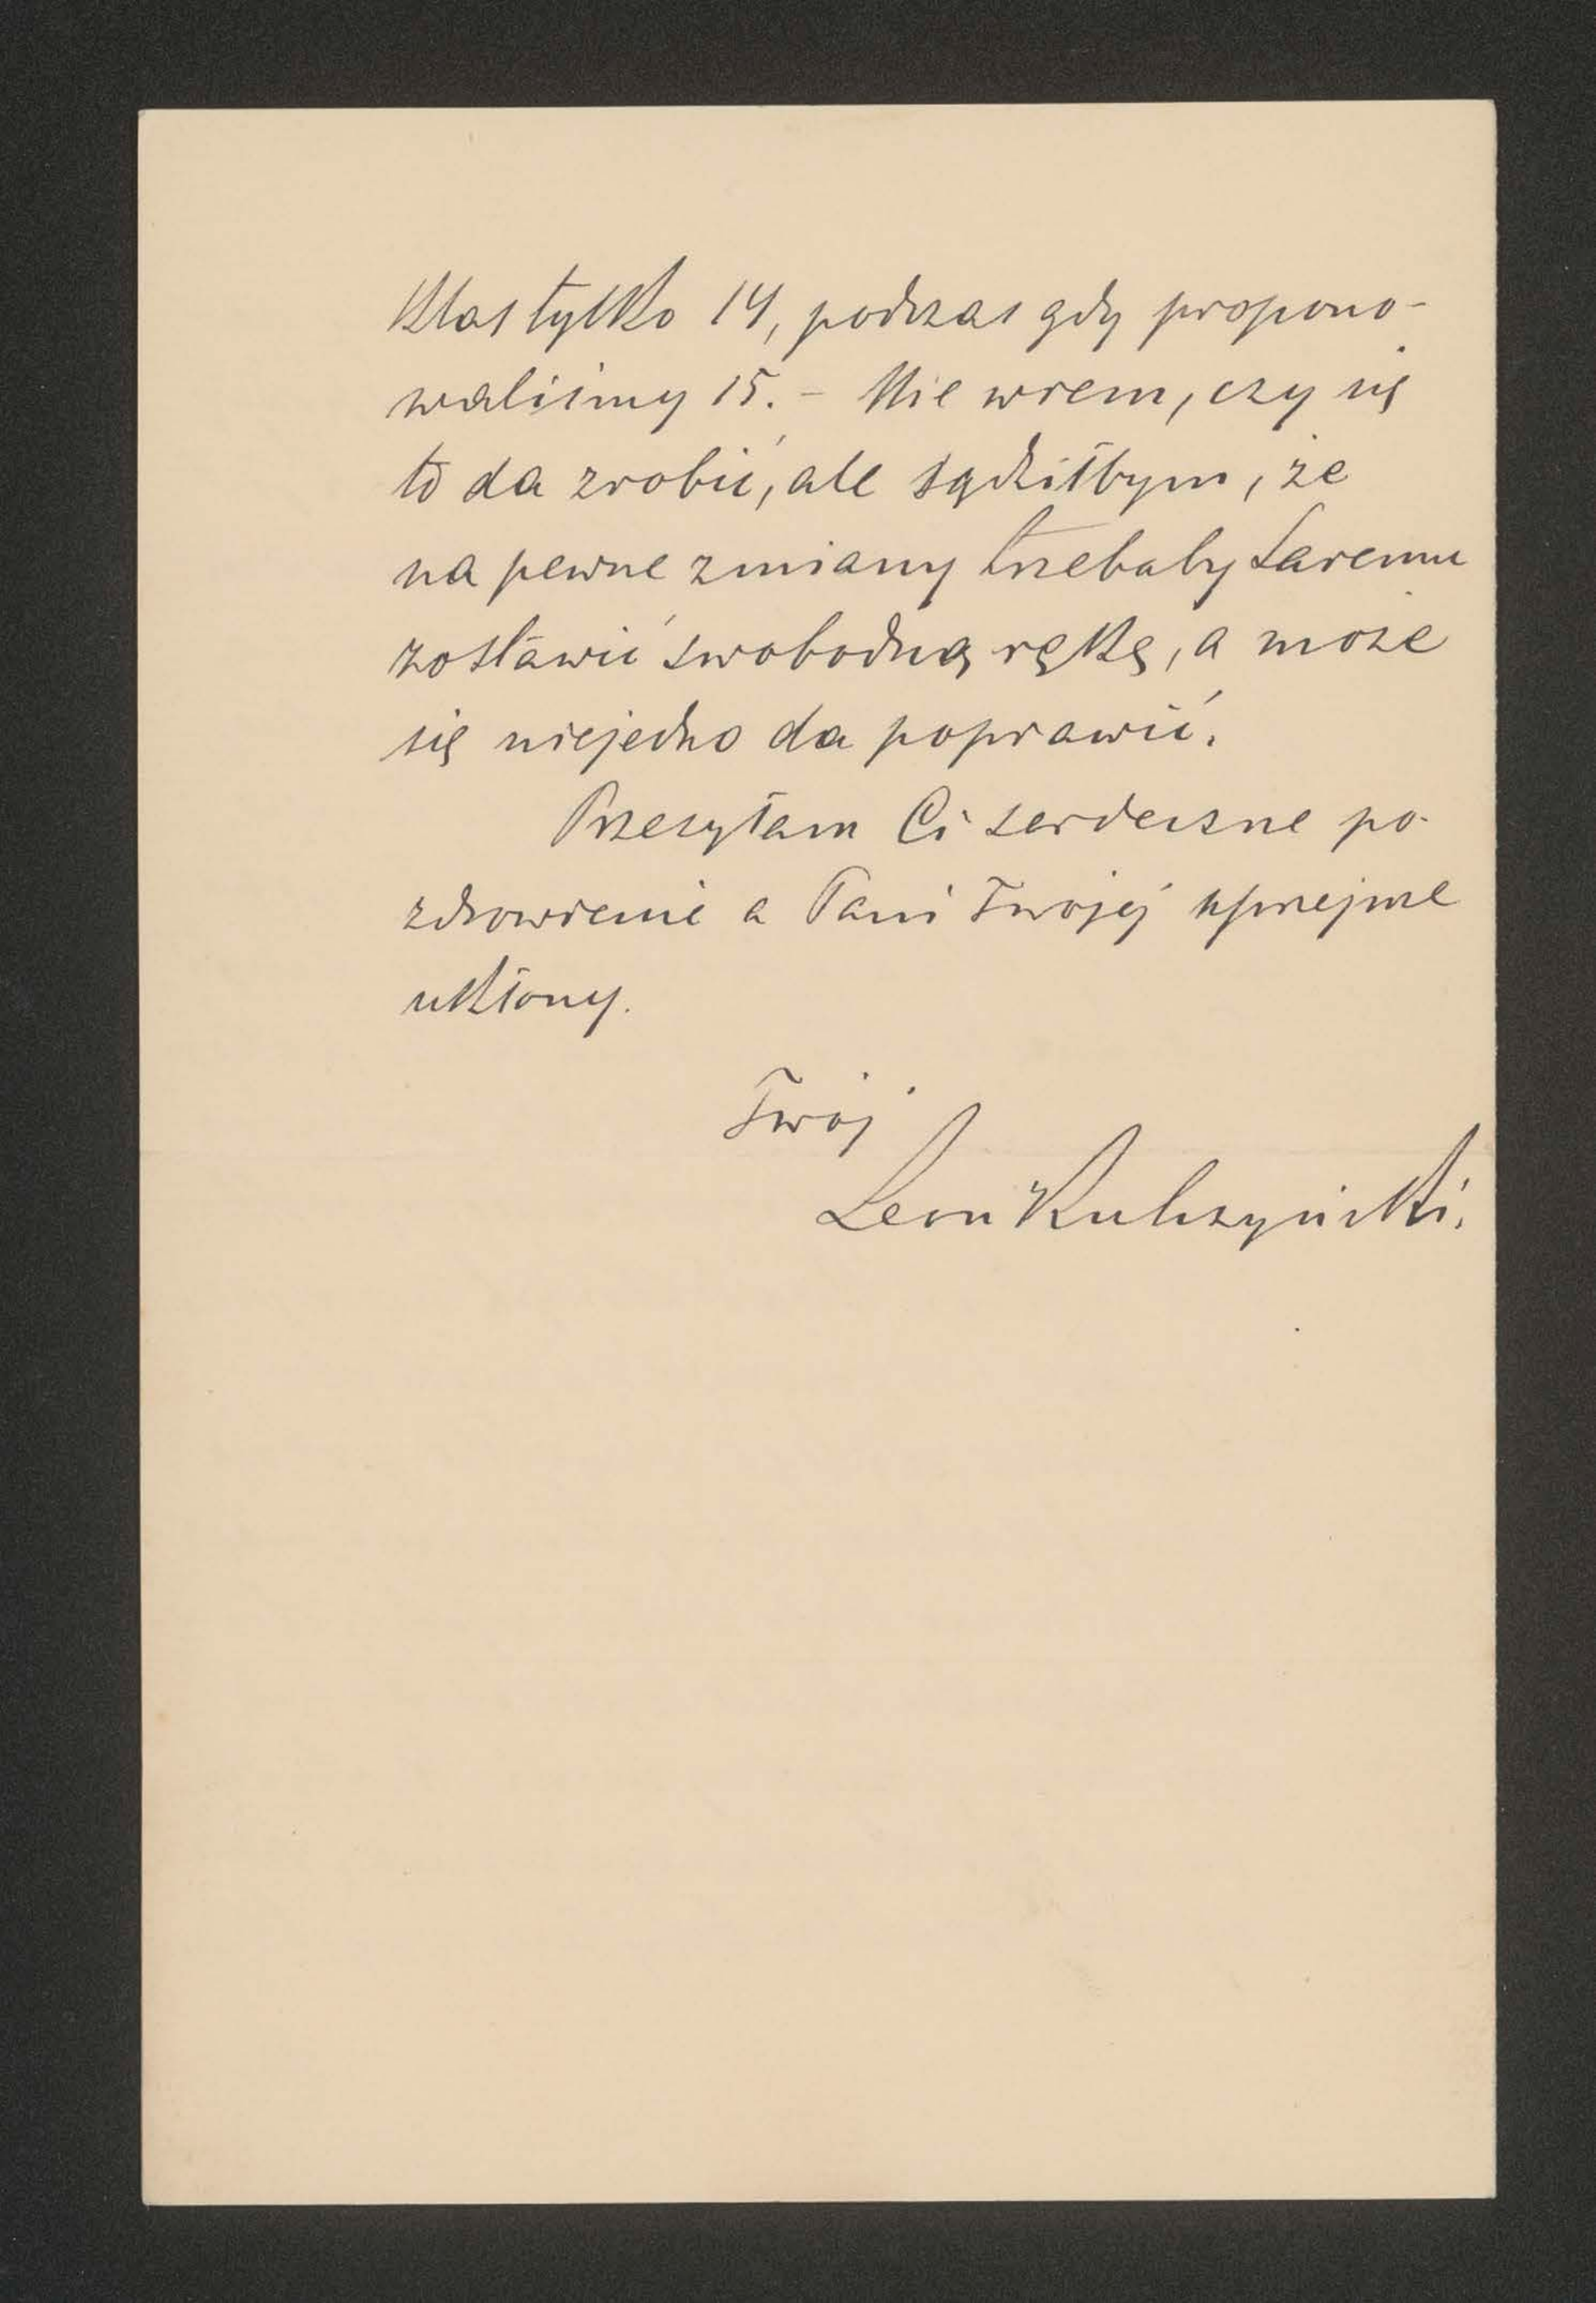 klas tylko 14, podczas gdy propono-
waliśmy 15. - Nie wiem, czy się
to da zrobić, ale sądziłbym, że
na pewne zmiany trzebaby Laremu
zostawić swobodną rękę, a może
się niejedno da poprawić.
Przesyłam Ci serdeczne po-
zdrowienie a Pani Twojej uprzejme
ukłony.
Twój
Leon Kulczyński.